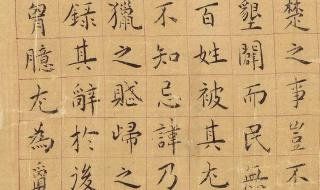 楚之事豈不
墾闢而民無
百姓被其尤
不知忌諱乃
獵之賦歸之
錄其辭於後
胷臆尤為